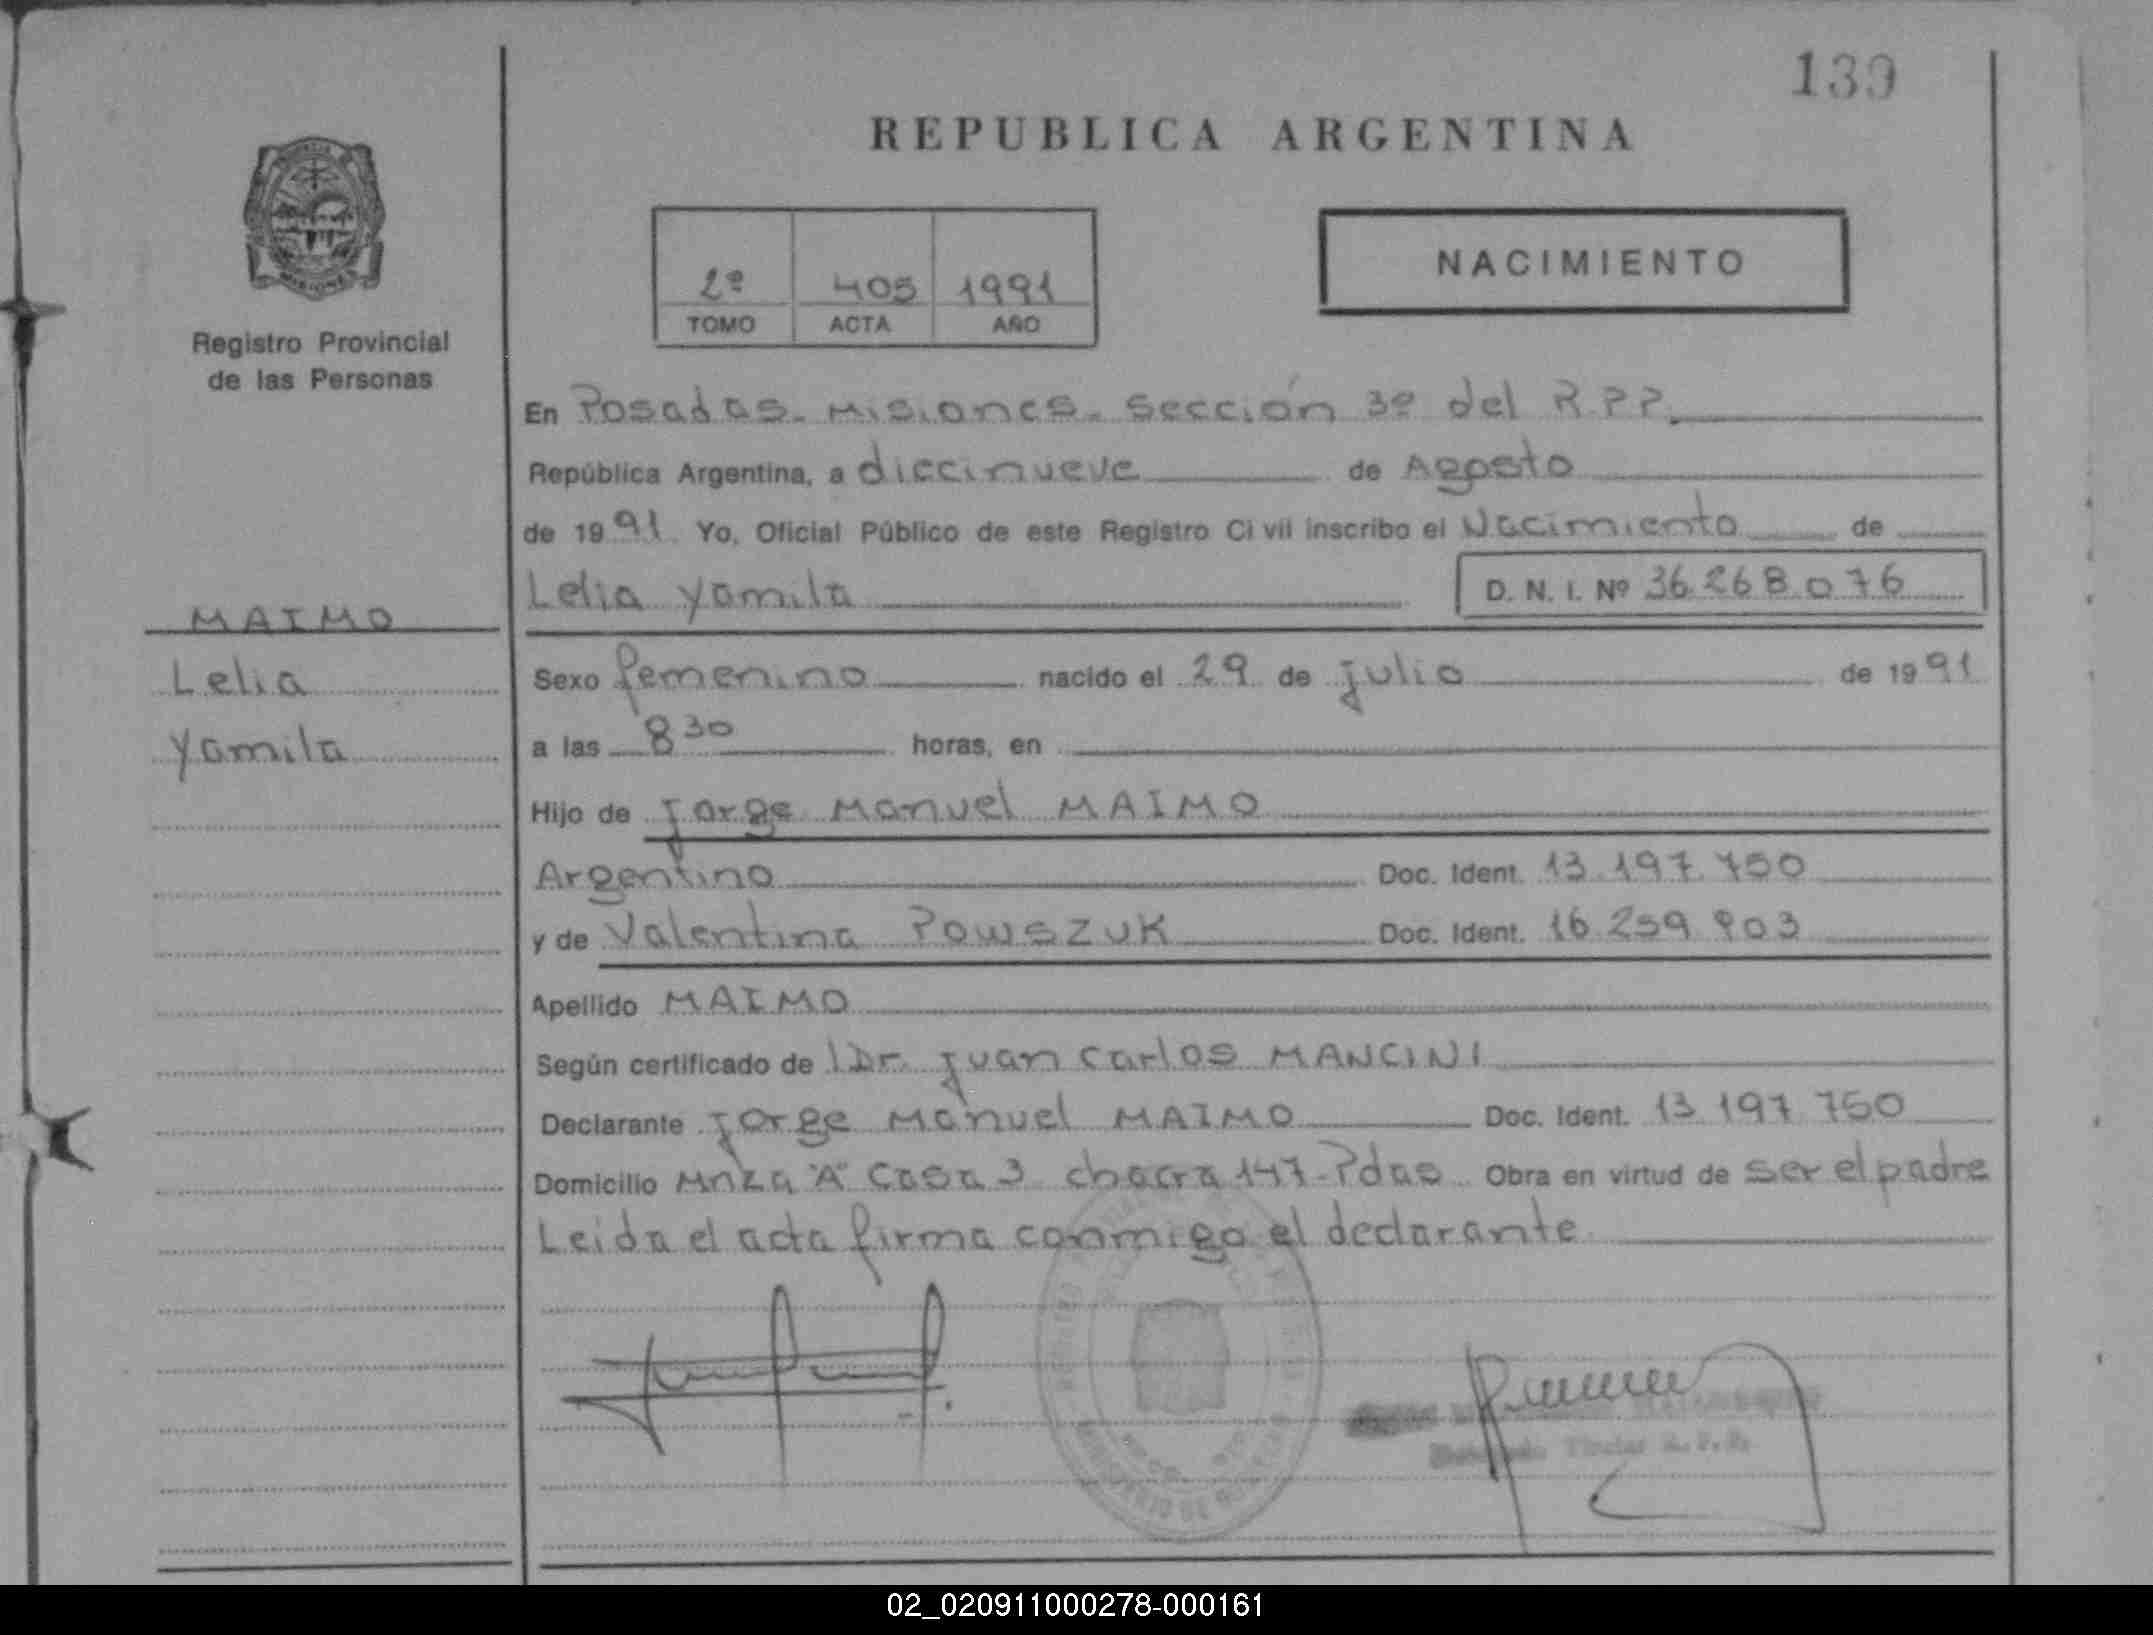 139
REPUBLICA ARGENTINA
2º 405 1991
TOMO ACTA AÑO
NACIMIENTO
Registro Provincial
de las Personas
En Posadas - Misiones - Sección 3º del R.P.P.
República Argentina, a diecinueve de Agosto
de 1991 Yo, Oficial Público de este Registro Civil inscribo el Nacimiento de
Lelia Yamila D. N. I. Nº 36.268.076
MAIMO
Lelia
Yamila
Sexo femenino nacido el 29 de julio de 1991
a las 8 30 horas, en
Hijo de Jorge Manuel MAIMO
Argentino Doc. Ident. 13.197.750
y de Valentina POWSZUK Doc. Ident. 16.259.903
Apellido MAIMO
Según certificado de l Dr. Juan Carlos MANCINI
Declarante Jorge Manuel MAIMO Doc. Ident. 13.197.750
Domicilio Mnza "A" Casa 3 chacra 147 - Pdas Obra en virtud de ser el padre
Leida el acta firma conmigo el declarante
Titular R.P.P.
02_020911000278-000161